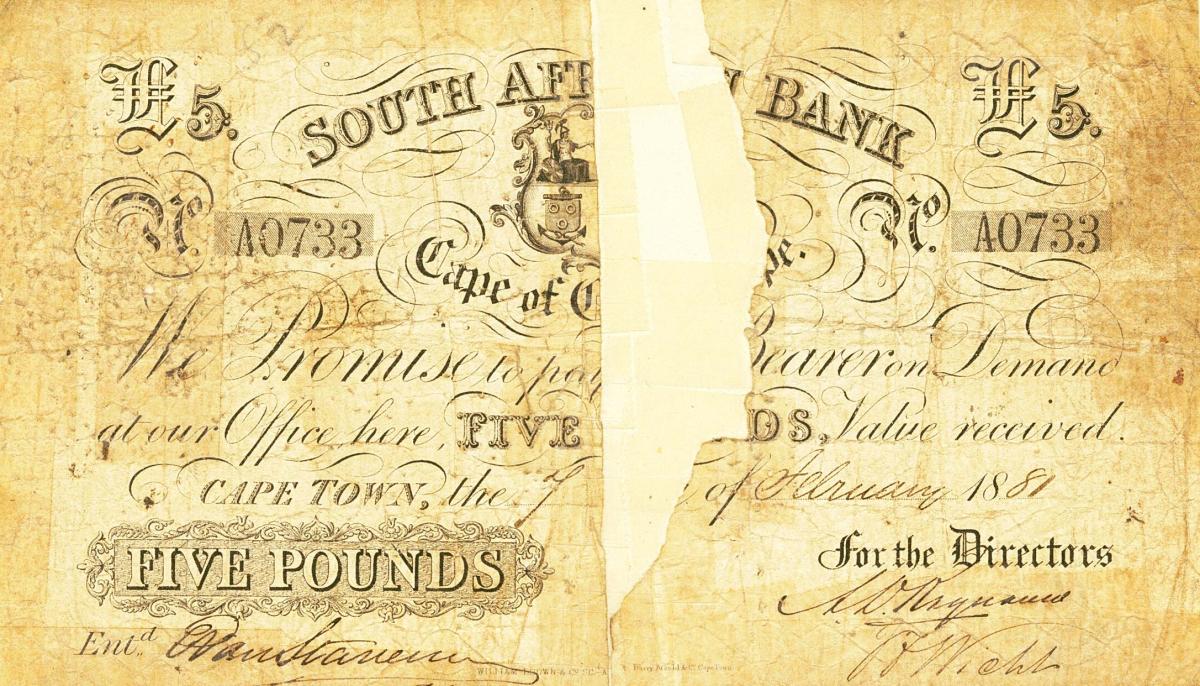 £5. SOUTH AFR N BANK £5.
No. A0733 No. A0733
Cape of G pe.
We Promise to pay Bearer on Demand
at our Office here, FIVE DS, Value received.
CAPE TOWN, the 7 of February 1881
FIVE POUNDS For the Directors
Entd.